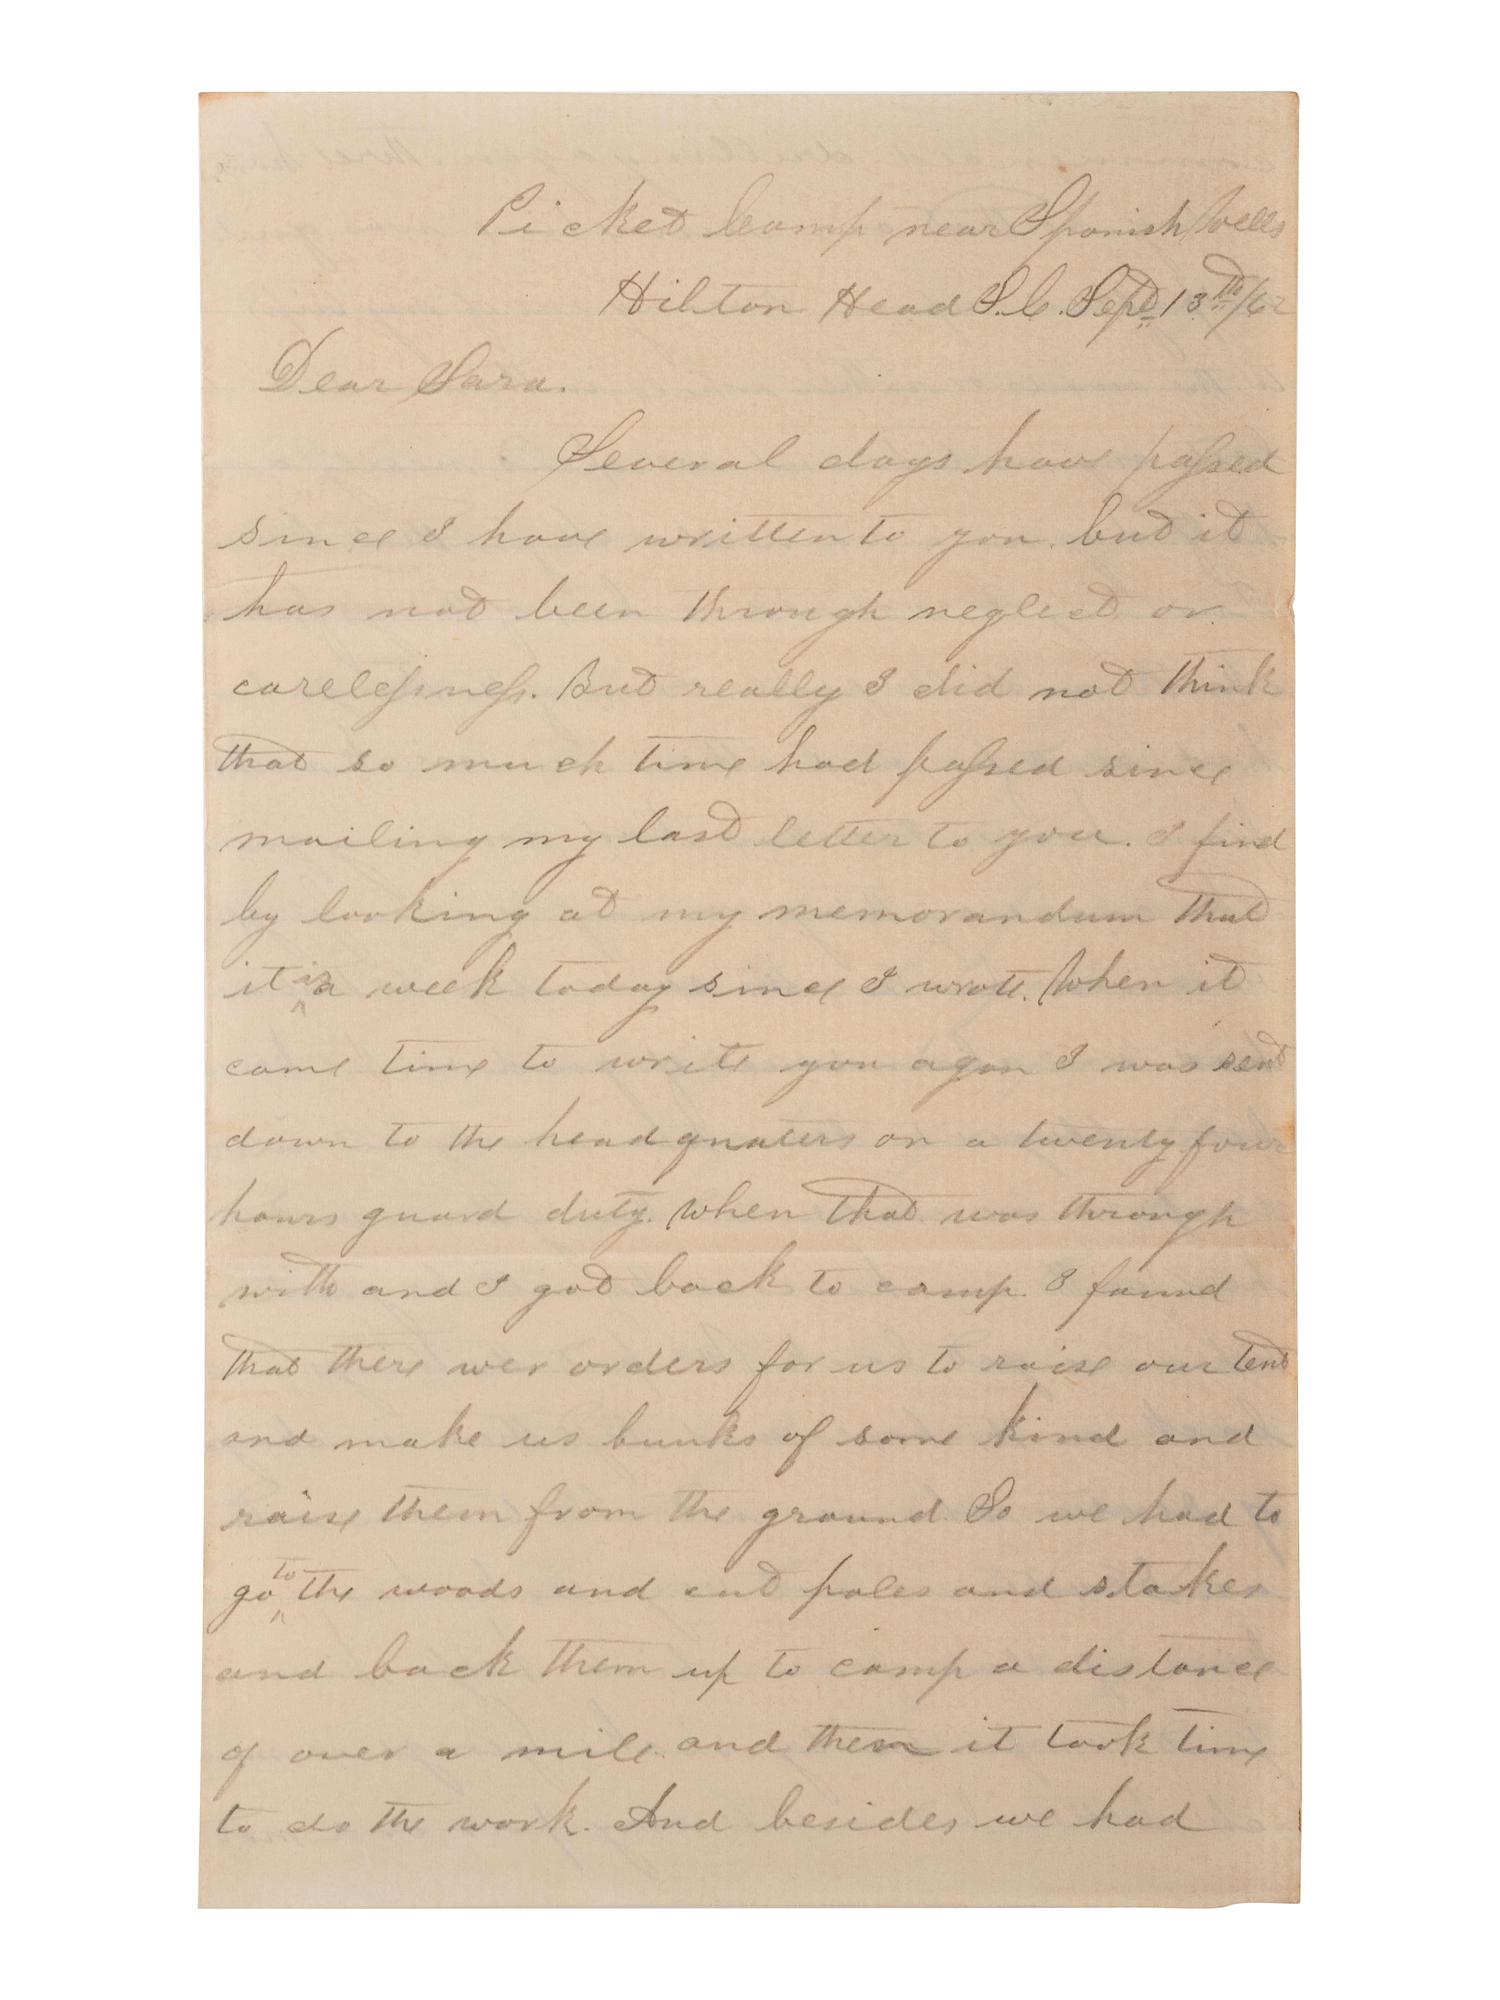 Picket Camp near Spanish Wells
Hilton Head S.C. Sept 13th/62
Dear Sara.
Several days have passed
since I have written to you. but it
has not been through neglect or
carelessness. But really I did not think
that so much time had passed since
mailing my last letter to you. I find
by looking at my memorandum that
it is a week today since I wrote. When it
came time to write you agan I was sent
down to the headquaters on a twenty four
hours guard duty. When that was through
with and I got back to camp. I found
that there wer orders for us to raise our tent
and make us bunks of some kind and
raise them from the ground. So we had to
go to the woods and cut poles and stakes
and back them up to camp a distance
of over a mile. and then it took time
to do the work. And besides we had